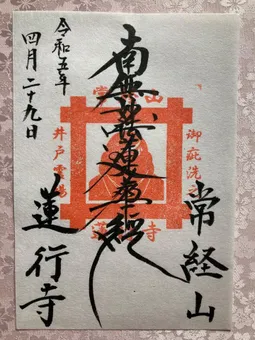 常経山
南無妙法蓮華経
令和五年
四月二十九日
蓮行寺
御疵洗之
井戸霊場